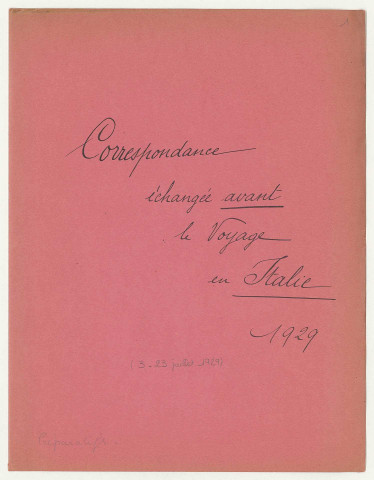 Correspondance
échangée avant
le Voyage
en Italie
1929
(3-23 juillet 1929)